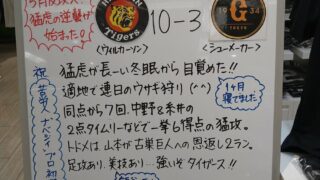 猛虎の逆襲が
始まった。
Tigers
(ウィルカーソン)
10-3
G
1934
(シューメーカー)
猛虎が長い冬眠から目覚めた!!
適地で連日のウサギ狩り(^^)
1ヶ月
寝てました
同点から7回、中野&糸井の
2点タイムリーなどで一挙6得点の猛攻。
トドメは山本が古巣巨人への恩返し2ラン。
足攻あり、美技あり…強いぞタイガース!!
祝
プロ初